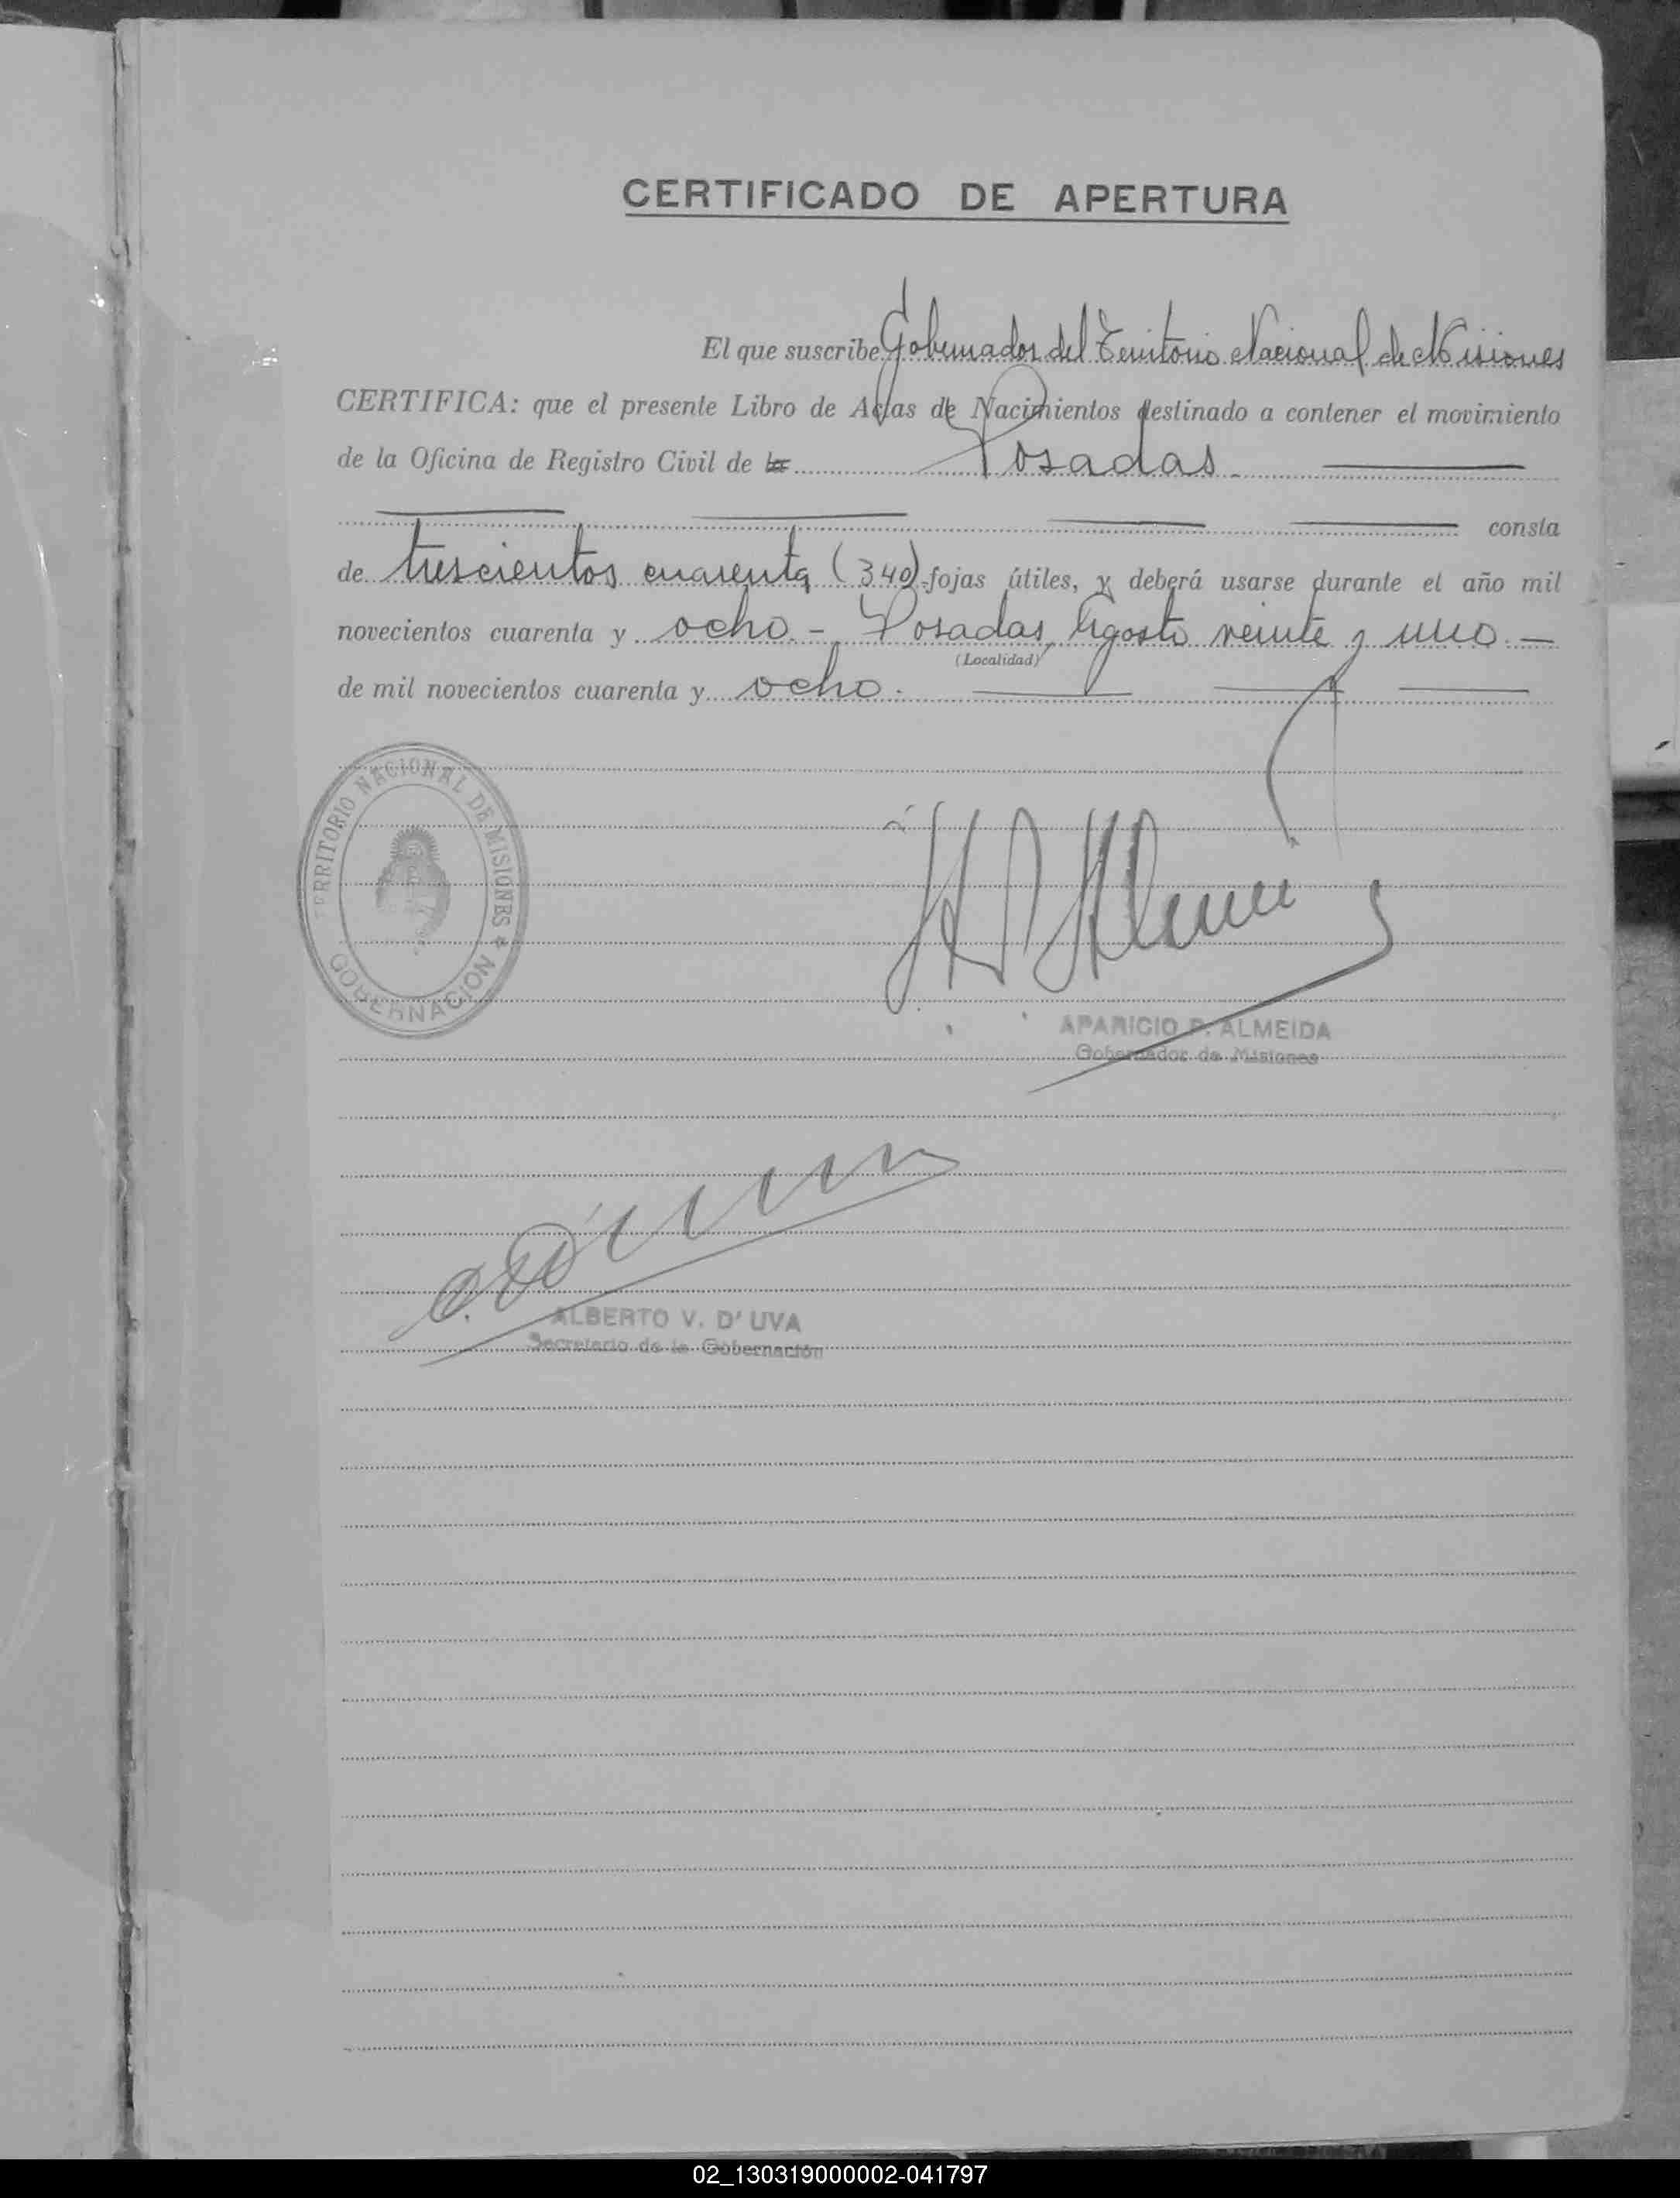 CERTIFICADO DE APERTURA
El que suscribe Gobernador del Territorio Nacional de Misiones
CERTIFICA: que el presente Libro de Actas de Nacimientos destinado a contener el movimiento
de la Oficina de Registro Civil de la Posadas
consta
de trescientos cuarenta (340) fojas útiles, y deberá usarse durante el año mil
novecientos cuarenta y ocho.- Posadas, Agosto veinte y uno.-
(Localidad)
de mil novecientos cuarenta y ocho.
TERRITORIO NACIONAL DE MISIONES
GOBERNACION
APARICIO P. ALMEIDA
Gobernador de Misiones
ALBERTO V. D'UVA
Secretario de la Gobernación
02_130319000002-041797